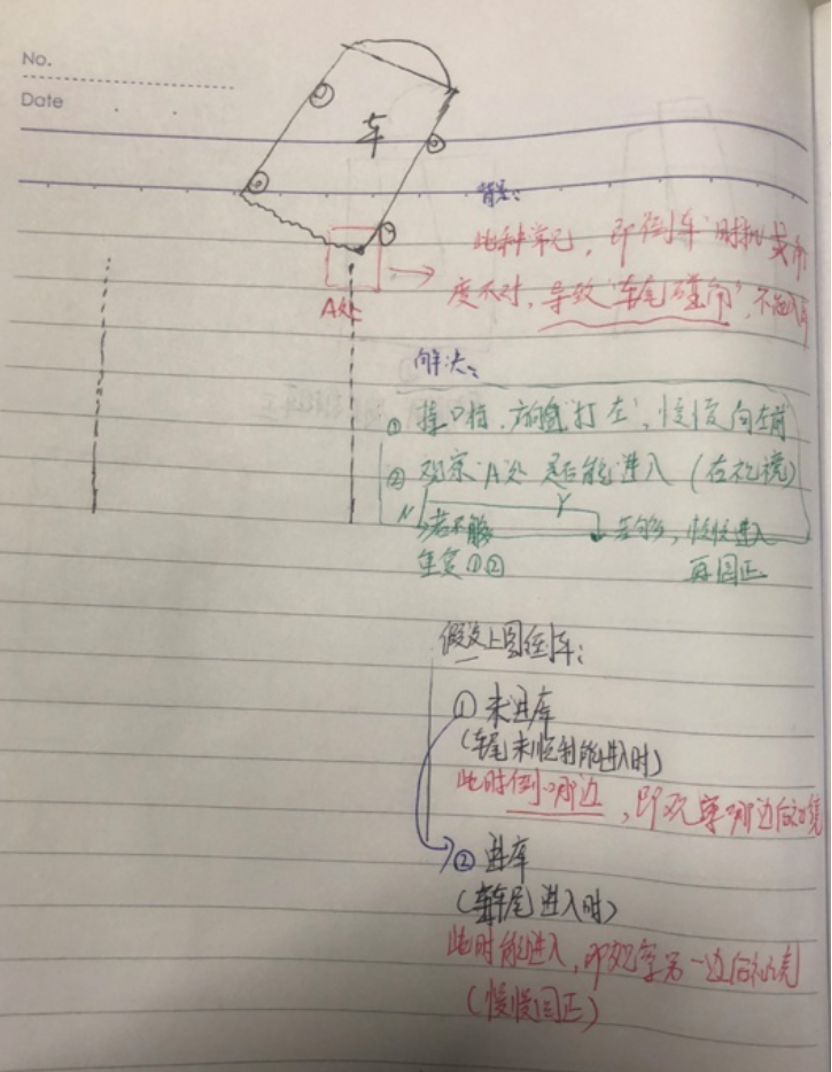 No.
Date
车
背景:
此种常见,即"倒车"时机或角
度不对,导致"车尾碰角",不能入库
A处
解决:
① 挂D档,方向盘"打左",慢慢向左前
② 观察"A处"是否能进入(右视镜)
N Y
若不能 若够,慢慢进入
重复①② 再回正
假设上图倒车:
① 未进库
(车尾未顺利能进入时)
此时倒哪边,即观察哪边后视镜
② 进库
(车尾进入时)
此时能进入,即观察另一边后视镜
(慢慢回正)